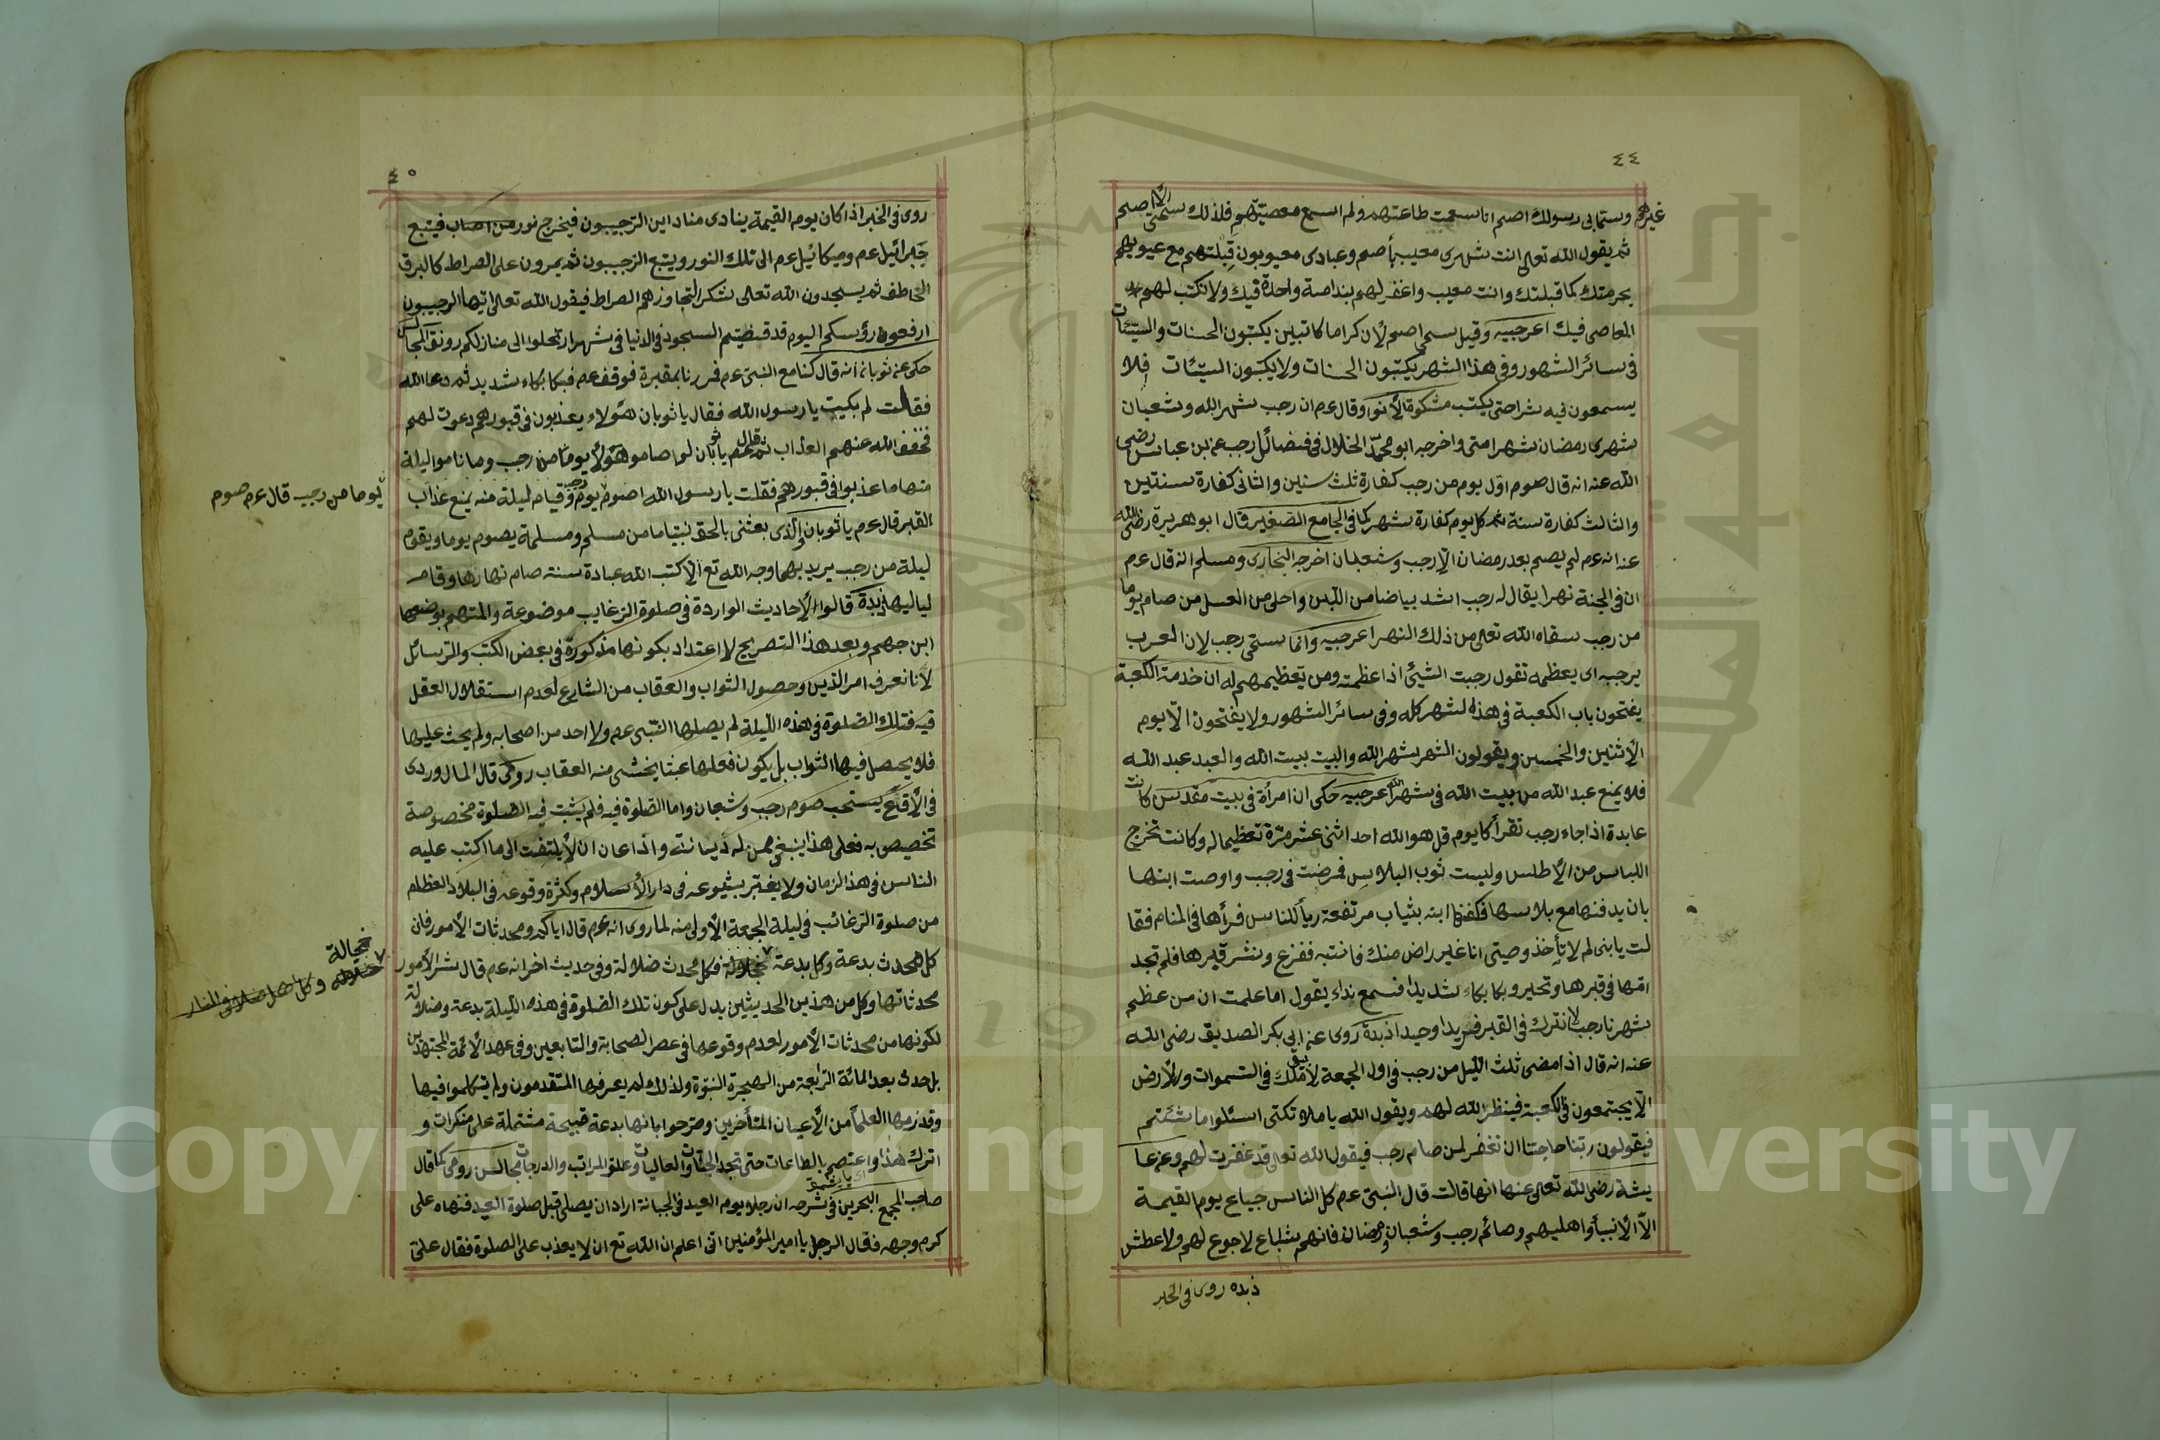 ٤٤
غيرهم وستمابي رسولك اصم انا سمعت طاعتهم ولم اسمع معصيتهم فلذلك سمتى الاصم
ثم يقول الله تعالى انت شهرى معيب بأصم وعبادى معيوبون قبلتهم مع عيوبهم
بحرمتك كما قبلتك وانت معيب واغفر لهم بندامة واحدة فيك ولا تكتب لهم
المعاصى فيك اعرجيه وقيل سمى اصم لأن كراما كاتبين يكتبون الحسنات والسيئات
فى سائر الشهور وفى هذا الشهر يكتبون الحسنات ولا يكتبون السيئات فلا
يسمعون فيه شرا حتى يكتب مشكوة الأنوار وقال عم ان رجب شهر الله وشعبان
شهرى رمضان شهر امتى واخرجه ابو محمد الخلال فى فضائل رجب عن ابن عباس رضى
الله عنه انه قال صوم اول يوم من رجب كفارة ثلث سنين والثانى كفارة سنتين
والثالث كفارة سنة ثم كل يوم كفارة شهر كما فى الجامع الصغير قال ابو هريرة رضى الله
عنه انه عم لم يصم بعد رمضان الا رجب وشعبان اخرجه البخارى ومسلم انه قال عم
ان فى الجنة نهرا يقال له رجب اشد بياضا من اللبن واحلى من العسل من صام يوما
من رجب سقاه الله تعالى من ذلك النهر اعرجيه وانما سمى رجب لان العرب
يرجبه اى يعظمه تقول رجبت الشيئ اذا عظمته ومن تعظيمهم له ان خدمة الكعبة
يفتحون باب الكعبة فى هذا الشهر كله وفى سائر الشهور ولا يفتحون الا يوم
الأثنين والخمسين ويقولون الشهر شهر الله والبيت بيت الله والعبد عبد الله
فلا يمنع عبد الله من بيت الله فى شهر الله اعرجيه حكى ان امرأة فى بيت مقدس كانت
عابدة اذا جاء رجب تقرأ كل يوم قل هو الله احد اثنى عشر مرة تعظيما له وكانت تخرج
اللباس من الأطلس وليست ثوب البلاس فمرضت فى رجب واوصت ابنها
بان يدفنها مع بلاسها فكفنها ابنه بثياب مرتفعة رياً للناس فرأها فى المنام فقا
لت يا بنى لم لا تأخذ وصيتى انا غير راض منك فانتبه ففزع ونشر قبرها فلم تجد
امها فى قبرها وتحير وبكا بكاء شديدا فسمع نداء يقول اما علمت ان من عظم
شهرنا رجب لا نترك فى القبر فريدا وحيدا ذبدة روى عن ابى بكر الصديق رضى الله
عنه انه قال اذا مضى ثلث الليل من رجب فى اول الجمعة لا يبقى ملك فى السموات والأرض
الا يجتمعون فى الكعبة فينظر الله لهم ويقول الله يا ملائكتى اسئلوا ما شئتم
فيقولون ربنا حاجتنا ان تغفر لمن صام رجب فيقول الله تعالى قد غفرت لهم وعن عا
يشة رضى الله تعالى عنها انها قالت قال النبى عم كل الناس جياع يوم القيمة
الا الأنبيأ واهليهم وصائم رجب وشعبان ورمضان فانهم شباع لا جوع لهم ولا عطش
ذبده روى فى الخبر
٤٥
روى فى الخبر اذا كان يوم القيمة ينادى مناد اين الرجبيون فيخرج نور من اصاب فيتبع
جبرائيل عم وميكائيل عم الى تلك النور ويتبع الرجبيون ثم يمرون على الصراط كالبرق
الخاطف ثم يسجدون الله تعالى شكرا لتجاوزهم الصراط فيقول الله تعالى ايها الرجبيون
ارفعون رؤسكم اليوم قد قضيتم السجود فى الدنيا فى شهر ارتحلوا الى منازلكم رونق المجالس
حكى عن ثوبان انه قال كنا مع النبى عم فمررنا بمقبرة فوقف عم فبكا بكاء شديد ثم دعا الله
فقالت لم بكيت يا رسول الله فقال يا ثوبان هؤلاء يعذبون فى قبورهم دعوت لهم
فخفف الله عنهم العذاب ثم قال عم يا ثوبان لو صاموا هؤلأ يوما من رجب وما ناموا ليلة
منها ما عذبوا فى قبورهم فقلت يا رسول الله اصوم يوم رجب وقيام ليلة منه يمنع عذاب
يوما من رجب قال عم صوم
القبر قال عم يا ثوبان والذى بعثنى بالحق نبيا ما من مسلم ومسلمة يصوم يوما ويقوم
ليلة من رجب يريد بهما وجه الله تع الا كتب الله عبادة سنة صام نهارها وقام
لياليها زبدة قالوا الأحاديث الواردة فى صلوة الرغايب موضوعة والمتهم بوضعها
ابن جهم وبعد هذا التصريح لا اعتداد بكونها مذكورة فى بعض الكتب والرسائل
لأنا نعرف امر الدين وحصول الثواب والعقاب من الشارع لعدم استقلال العقل
فيه فتلك الصلوة فى هذه الليلة لم يصلها النبى عم ولا احد من اصحابه ولم يحث عليها
فلا يحصل فيها الثواب بل يكون فعلها عبثا يخشى منه العقاب رومى قال المال وردى
فى الأقناع يستحب صوم رجب وشعبان واما الصلوة فيه فلم يثبت فيه الصلوة مخصوصة
تخصيص به فعلى هذا ينبغى لمن له ديانته واذعان ان لا يلتفت الى ما اكتب عليه
الناس فى هذا الزمان ولا يغتر بشيوعه فى دار الأسلام وكثرة وقوعه فى البلاد العظام
من صلوة الرغائب فى ليلة الجمعة الأولى منه لما روى انه عم قال اياكم ومحدثات الأمور فان
كل محدث بدعة وكل بدعة ضلالة فكل محدث ضلالة وفى حديث اخر انه عم قال شر الأمور
ضلالة
محدثاتها وكل من هذين الحديثين يدل على كون تلك الصلوة فى هذه الليلة بدعة وضلالة
لكونها من محدثات الأمور لعدم وقوعها فى عصر الصحابة والتابعين وفى عهد الأئمة المجتهدين
بل حدث بعد المائة الرابعة من الهجرة النبوة ولذلك لم يعرفها المتقدمون ولم يتكلموا فيها
وقد زمها العلمأ من الأعيان المتأخرين وصرحوا بانها بدعة قبيحة مشتملة على منكرات و
اترك هذا واعتصم بالطاعات حتى تجد الجنات والعاليات وعلو المراتب والدرجات مجالس رومى كما قال
صاحب المجمع البحرين فى شرحه ان رجلا يوم العيد فى الجبانة اراد ان يصلى قبل صلوة العيد فنهاه على
كرم وجهه فقال الرجل يا امير المؤمنين انى اعلم ان الله تع ان لا يعذب على الصلوة فقال على
Copyright © King Saud University